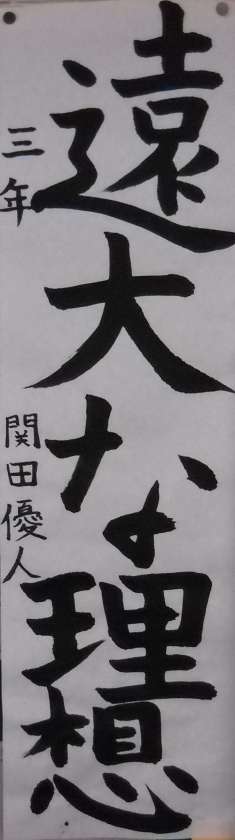 遠大な理想
三年 関田優人